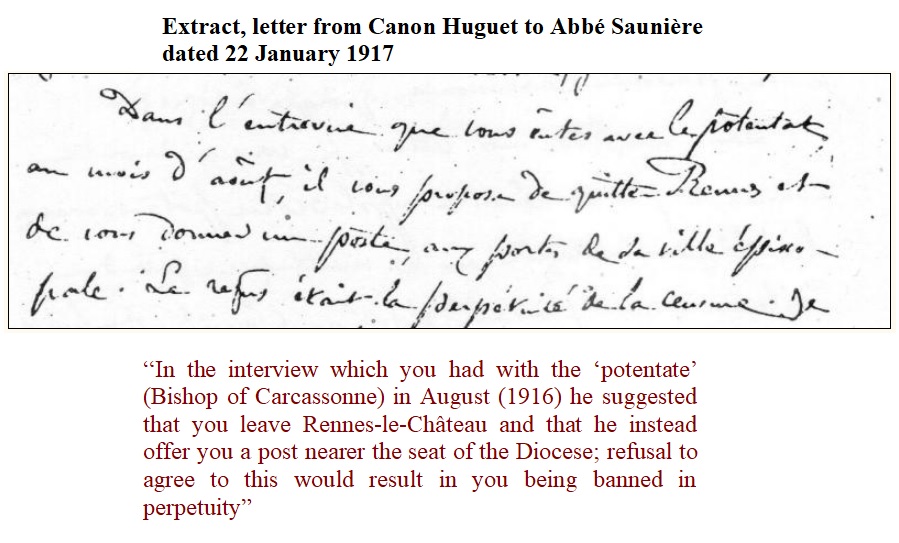 Extract, letter from Canon Huguet to Abbé Saunière
dated 22 January 1917
Dans l'entrevue que vous eûtes avec le potentat,
au mois d'août, il vous proposa de quitter Rennes et
de vous donner un poste, aux portes de sa ville épisco-
pale. Le refus était la perpétuité de la censure. Je
“In the interview which you had with the ‘potentate’
(Bishop of Carcassonne) in August (1916) he suggested
that you leave Rennes-le-Château and that he instead
offer you a post nearer the seat of the Diocese; refusal to
agree to this would result in you being banned in
perpetuity”